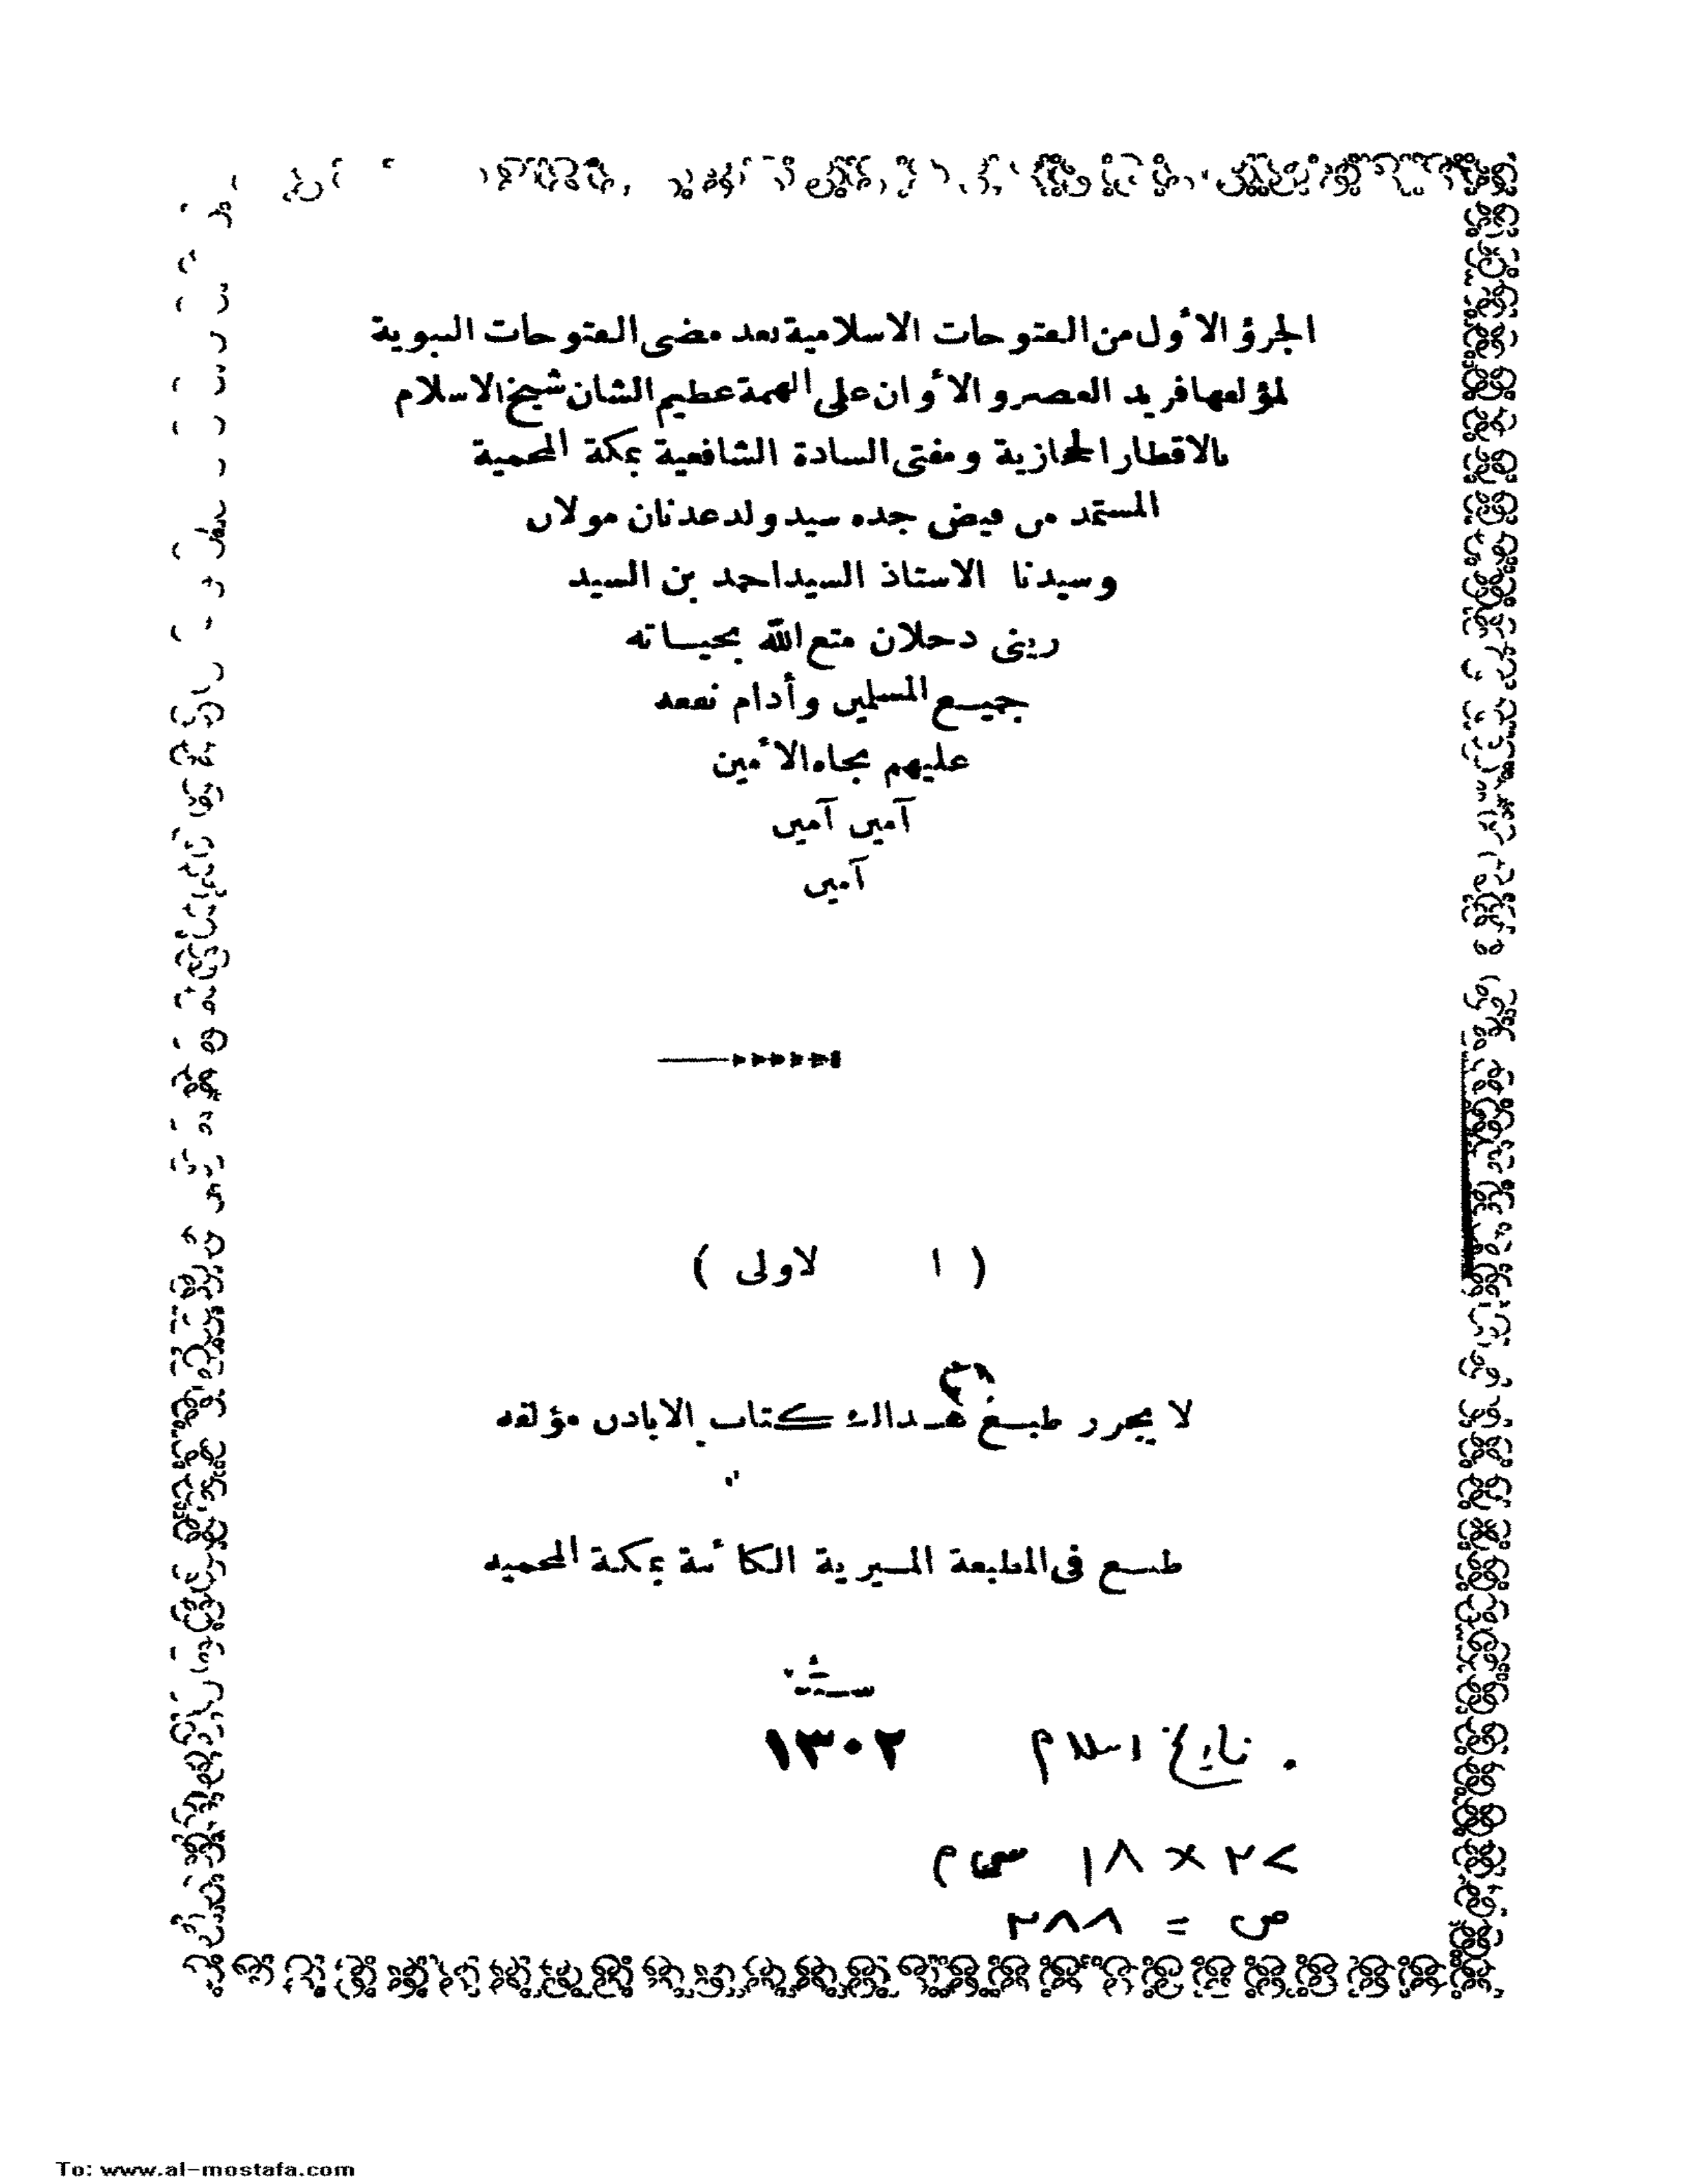 الجزؤ الأول من الفتوحات الاسلامية بعد مضى الفتوحات النبوية
لمؤلفها فريد العصر والأوان على الهمة عظيم الشان شيخ الاسلام
بالاقطار الحجازية ومفتى السادة الشافعية بمكة المحمية
المستمد من فيض جده سيد ولد عدنان مولانا
وسيدنا الاستاذ السيد احمد بن السيد
زينى دحلان متع الله بحياته
جميع المسلمين وأدام نفعه
عليهم بجاه الأمين
آمين آمين
آمين
( ا لاولى )
لا يجوز طبع هذا الكتاب الا باذن مؤلفه
طبع فى المطبعة الميرية الكائنة بمكة المحمية
سنة
١٣٠٢
تاريخ اسلام
٢٧ × ١٨ سم
ص = ٢٨٨
To: www.al-mostafa.com